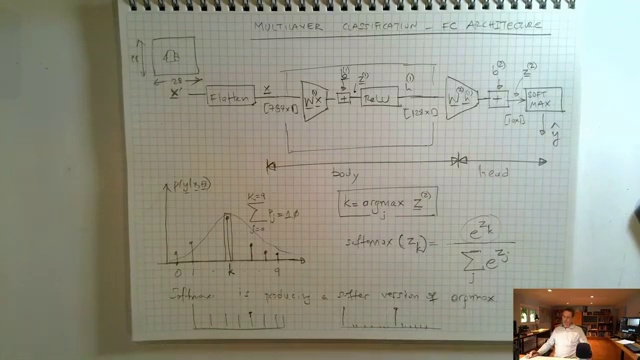 MULTILAYER CLASSIFICATION - FC ARCHITECTURE
28
28
X
Flatten
x
[784x1]
W⁽¹⁾x
b⁽¹⁾
+
z⁽¹⁾
ReLU
h⁽¹⁾
[128x1]
W⁽²⁾h
b⁽²⁾
+
z⁽²⁾
[10x1]
SOFT
MAX
ŷ
body
head
K=9
∑ Pj = 1.0
j=0
k = argmax z⁽²⁾
j
softmax (z_k) = e^{z_k}
∑ e^{z_j}
j
0 1 . k 9
Softmax is producing a softer version of argmax